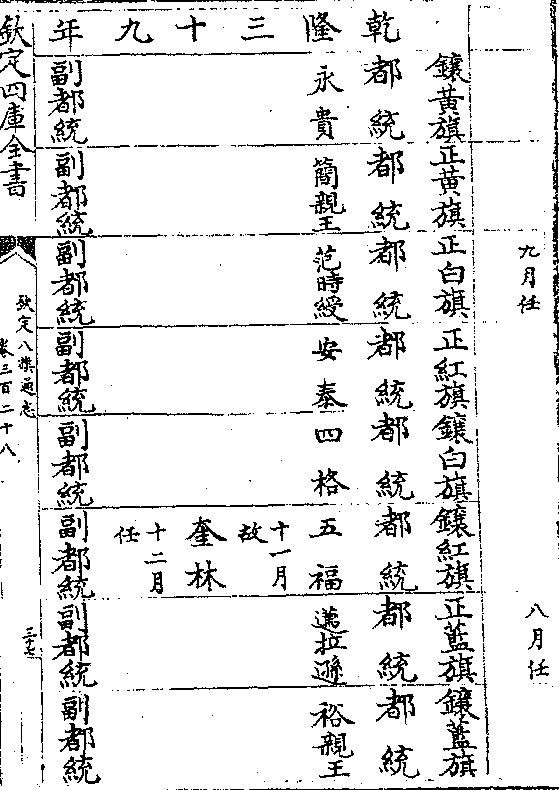 九月任
八月任
乾隆三十九年
鑲黃旗 正黃旗 正白旗 正紅旗 鑲白旗 鑲紅旗 正藍旗 鑲藍旗
都統 都統 都統 都統 都統 都統 都統 都統
永貴 簡親王 范時綬 安泰 四格 五福 邁拉遜 裕親王
十一月
故
奎林
十二月
任
副都統 副都統 副都統 副都統 副都統 副都統 副都統 副都統
欽定四庫全書
欽定八旗通志
卷三百二十八
三十七